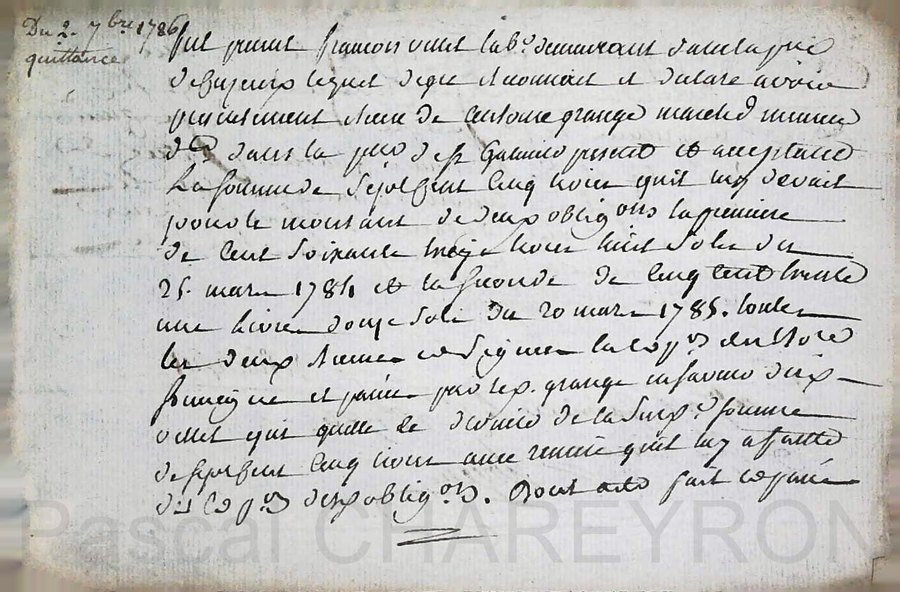 Du 2. 7bre 1786
quittance
fut present francois ollet lab.r demeurant dans la p.sse
lequel de gré reconnait et declare avoir
presentement receu de antoine grange march.d
dans la p.sse de S.t present et acceptant
La somme de sept cent cinq livres quil luy devait
pour le montant de deux oblig.ons la premiere
de cent soixante treize livres huit sols du
25. mars 1784 et la seconde de cinq cent trente
une livres douze sols du 20 mars 1785. toutes
les deux receues
et passées par led. grange en faveur dud.
ollet qui quitte ce dernier de la susd. somme
de sept cent cinq livres avec remise quil luy a faitte
des d. oblig.ons. Dont acte fait et passé
Pascal CHAREYRON